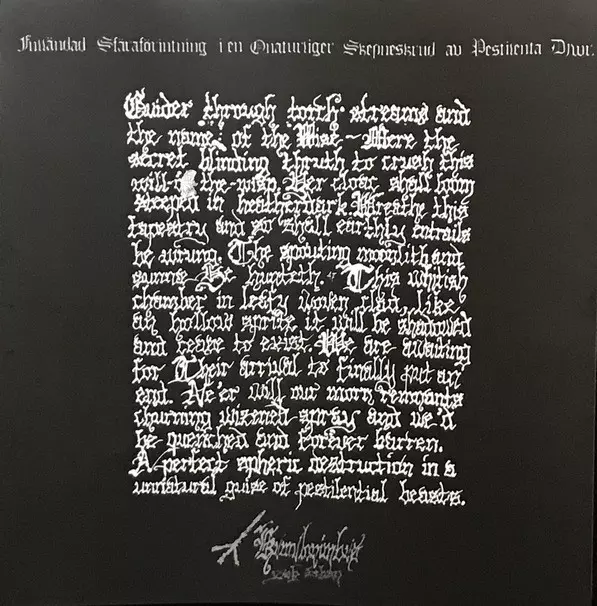 Fulländad Sfäraförintning i en Onaturliger Skepneskrud av Pestilenta Djwr.
Guider through torth-streams and
the name; of the Wise - Mere the
secret blinding thruth to crush this
will the-wisp. Her cloac shall loom
steeped in heatherdark. Wreathe this
tapestry and so shall earthly entrails
be wrung. The spouting moonlith and
sunns He hunteth. This whitish
chamber in leafy woven clad, like
an hollow sprite it will be shadowed
and cease to exist. We are awaiting
for Their arrival to finally put an
end. Ne'er will our morn remnants
churning wizened-spray and we'd
be quenched and forever barren.
A perfect spheric destruction in a
unnatural guise of pestilential beasts.